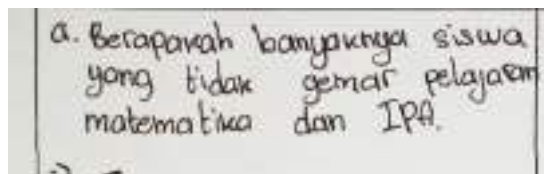 a. Berapakah banyaknya siswa
yang tidak gemar pelajaran
matematika dan IPA.